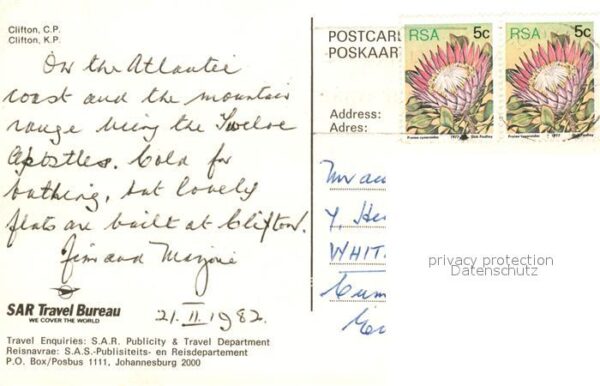 Clifton, C.P.
Clifton, K.P.
On the Atlantic
coast and the mountain
range being the Twelve
Apostles. Cold for
bathing, but lovely
flats are built at Clifton.
Jim and Marjorie
21.II.1982.
SAR Travel Bureau
WE COVER THE WORLD
Travel Enquiries: S.A.R. Publicity & Travel Department
Reisnavrae: S.A.S.-Publisiteits- en Reisdepartement
P.O. Box/Posbus 1111, Johannesburg 2000
POSTCARD
POSKAAR
Address:
Adres:
RSA 5c
Protea cynaroides 1977 Dick Findlay
RSA 5c
Protea cynaroides 1977 Dick Findlay
WHIT
privacy protection
Datenschutz